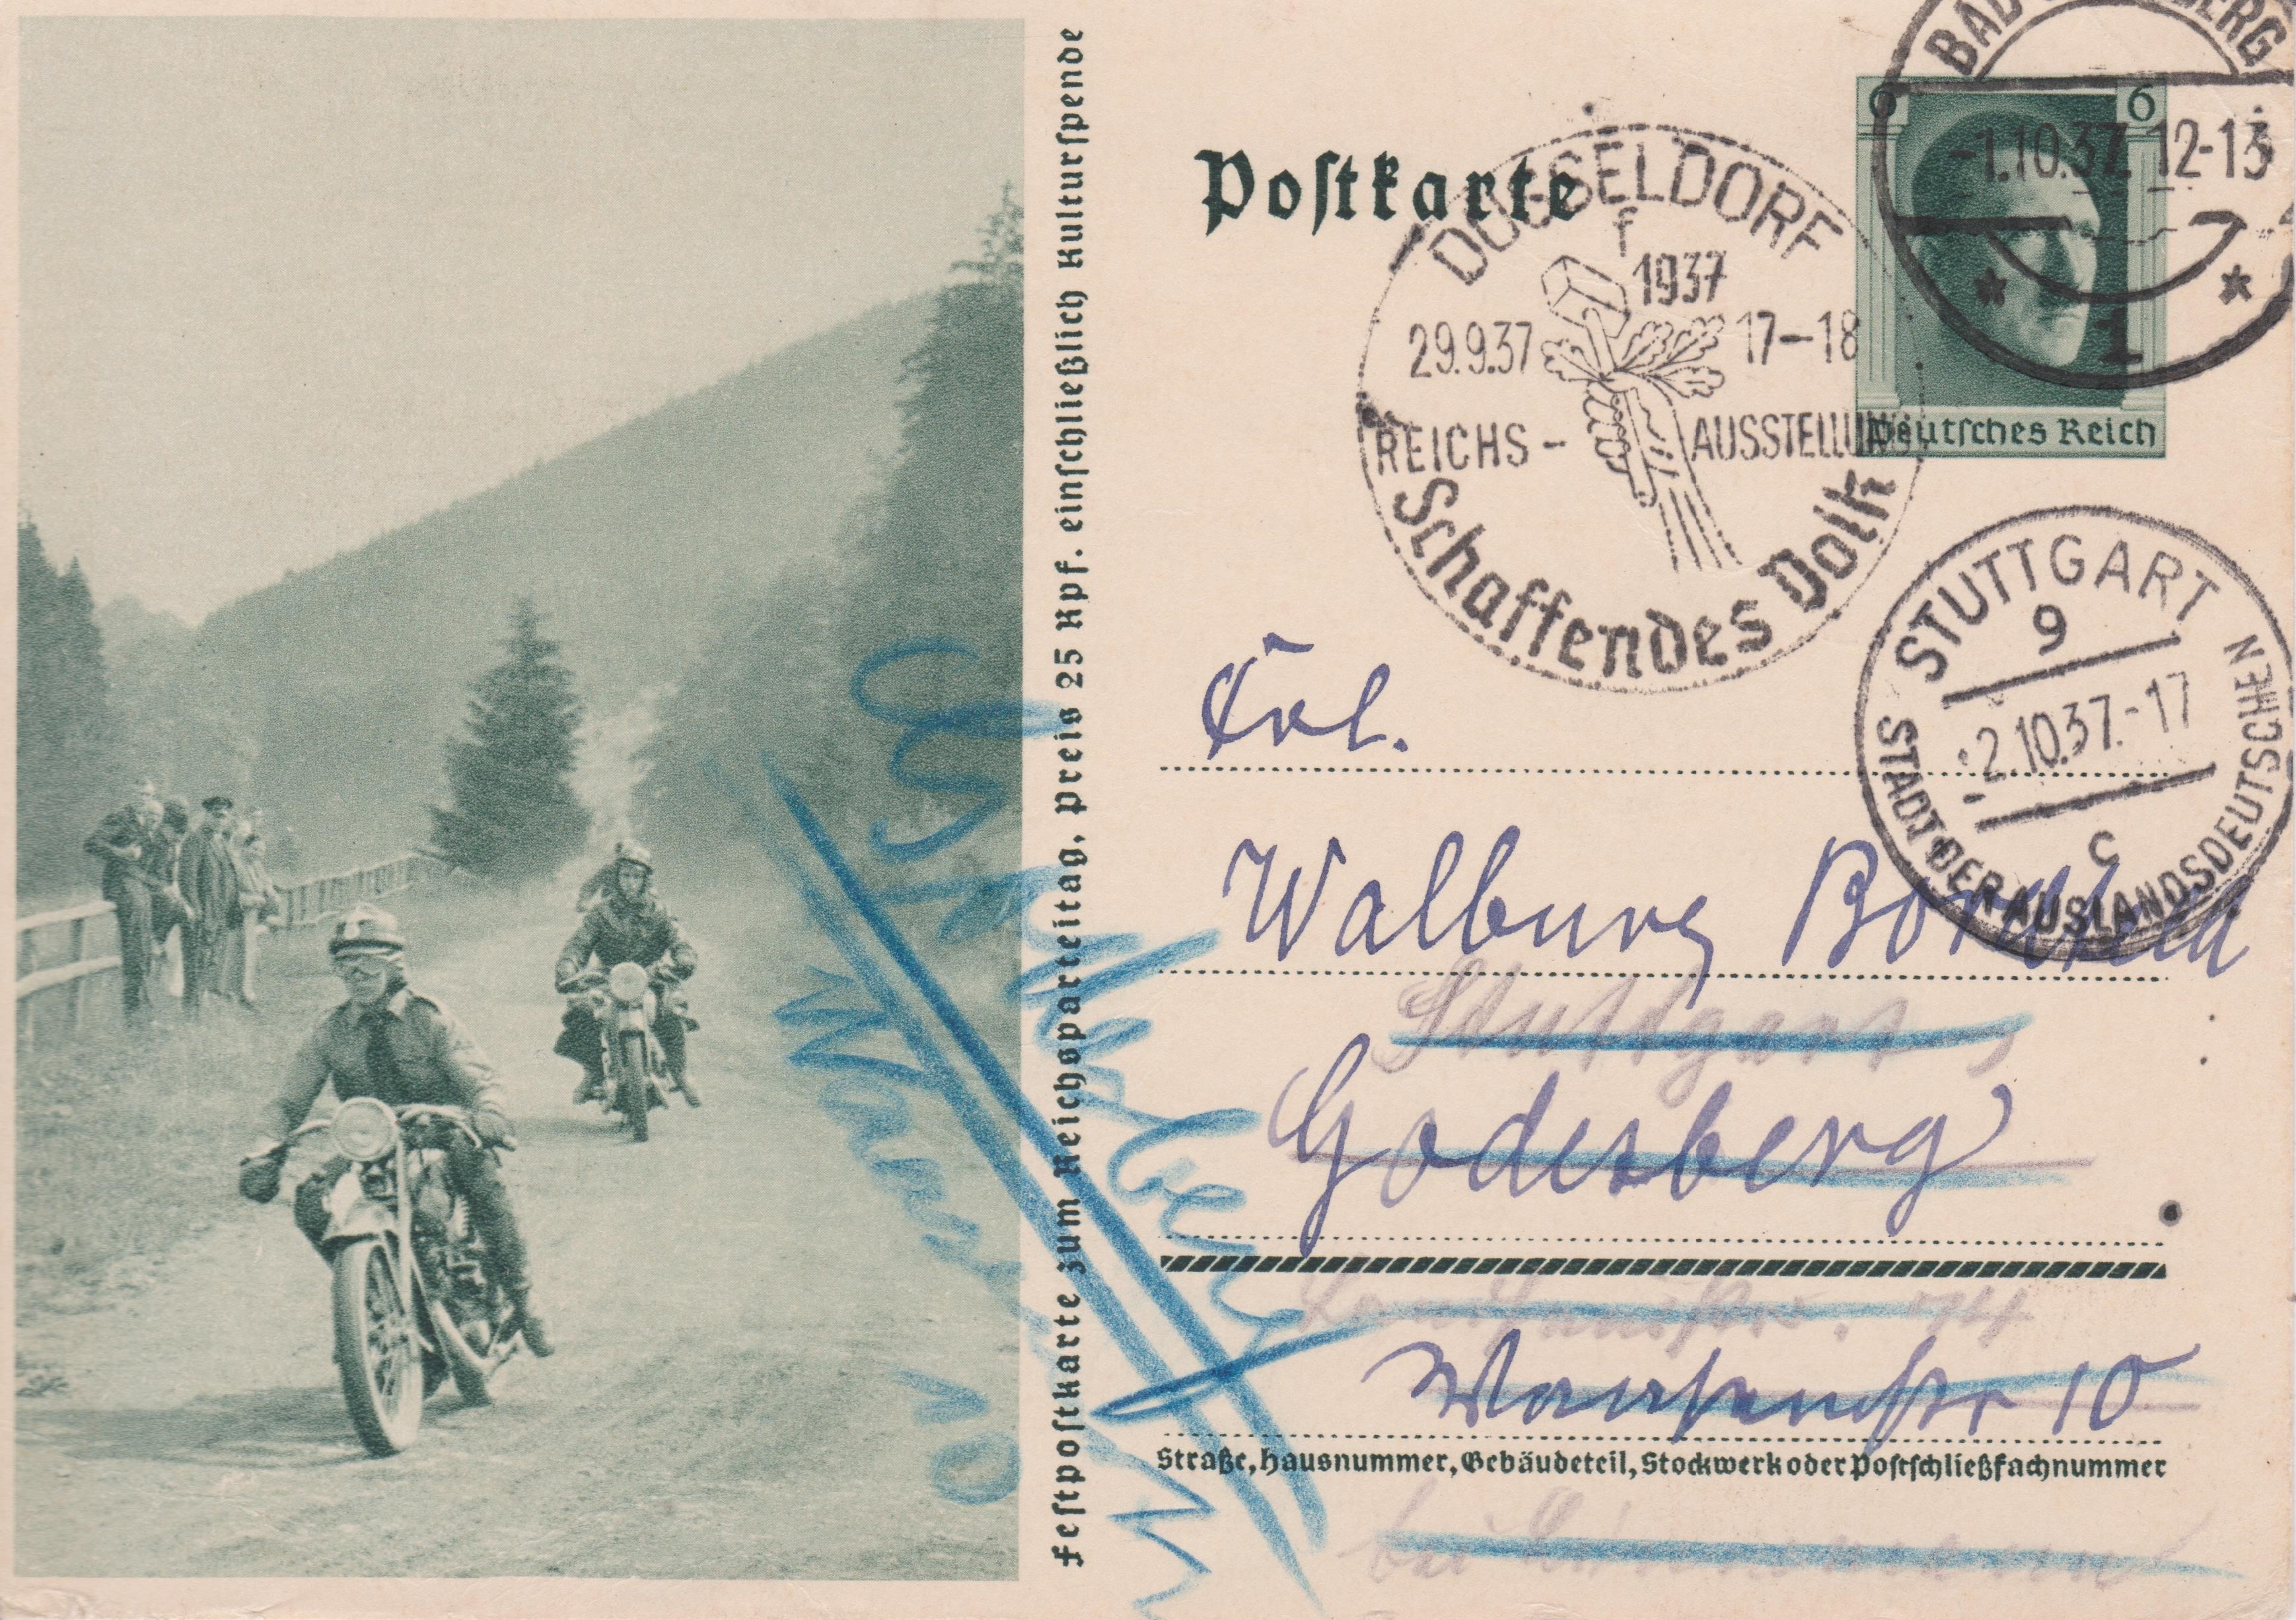 Festpostkarte zum Reichsparteitag, Preis 25 Rpf. einschließlich Kulturspende
Postkarte
DÜSSELDORF
f
1937
29.9.37 17-18
REICHS- AUSSTELLUNG
Schaffendes Volk
-1.10.37. 12-13
* 1 *
6 6
Deutsches Reich
STUTTGART
9
-2.10.37.-17
c
STADT DER AUSLANDSDEUTSCHEN
Frl.
Walburg
Stuttgart
Godesberg
10
Straße, Hausnummer, Gebäudeteil, Stockwerk oder Postschließfachnummer
bei